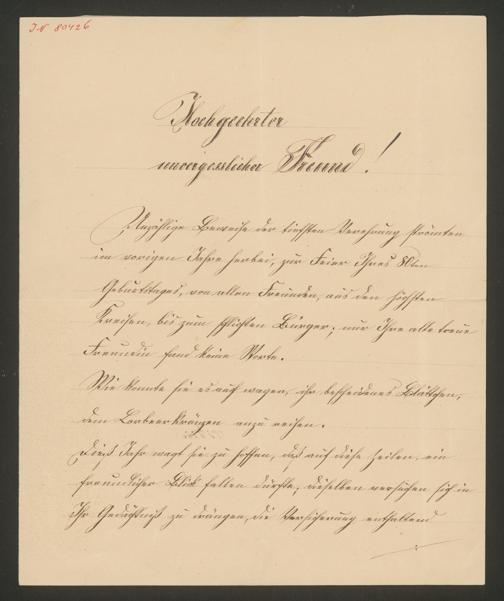 J.N 80426
Hochgeehrter
unvergesslicher Freund!
Unzählige Beweise der tiefsten Verehrung strömten
im vorigen Jahre herbei, zur Feier Ihres 80ten
Geburtstages, von allen Freunden, aus den höchsten
Kreisen, bis zum schlichten Bürger; nur Ihre alte treue
Freundin fand keine Worte.
Wie konnte sie es auch wagen, ihr bescheidenes Blättchen,
dem Lorbeerkränzen anzureihen.
Dieß Jahr wagt sie zu hoffen, daß auf diese Zeilen, ein
freundlicher Blick fallen dürfte, dieselben versuchen sich in
Ihr Gedächtniß zu drängen, die Versicherung enthaltend